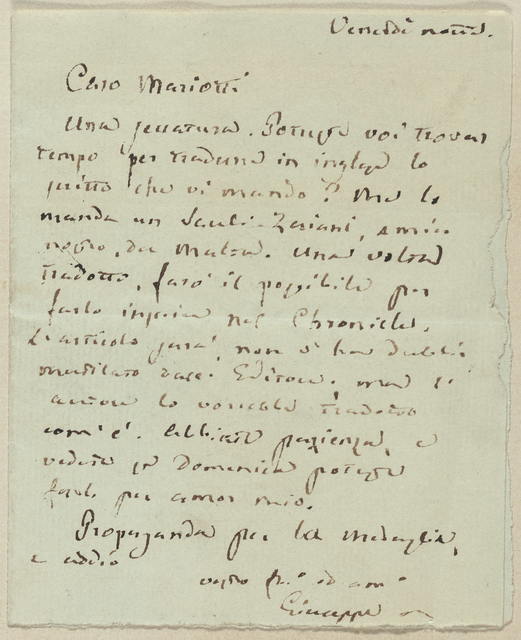 Venerdì notte.
Caro Mariotti
Una seccatura. Potreste voi trovar
tempo per tradurre in inglese lo
scritto che vi mando? Me lo
manda un Sauli-Zeriani, amico
nostro, da Malta. Una volta
tradotto, farò il possibile per
farlo inserire nel Chronicle.
L'articolo sarà, non v'ha dubbio
mutilato dall' Editore. ma l'
autore lo vorrebbe tradotto
com'è. Abbiate pazienza, e
vedete se Domenica poteste
farlo per amor mio.
Propaganda per la medaglia,
e addio
vostro fr.o ed am.o
Giuseppe